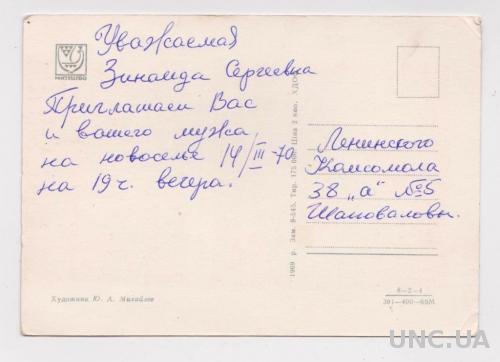 Уважаемая
Зинаида Сергеевна
Приглашаем Вас
и вашего мужа
на новоселье 14/III-70
на 19 ч. вечера.
Ленинского
Комсомола
38 „а" №5
Шаповаловы.
МИСТЕЦТВО
1969 р. Зам. 9-545. Тир. 175 000. Ціна 3 коп. ХДОФ
Художник Ю. А. Михайлов
8-2-4
381-400-69М
UNC.UA